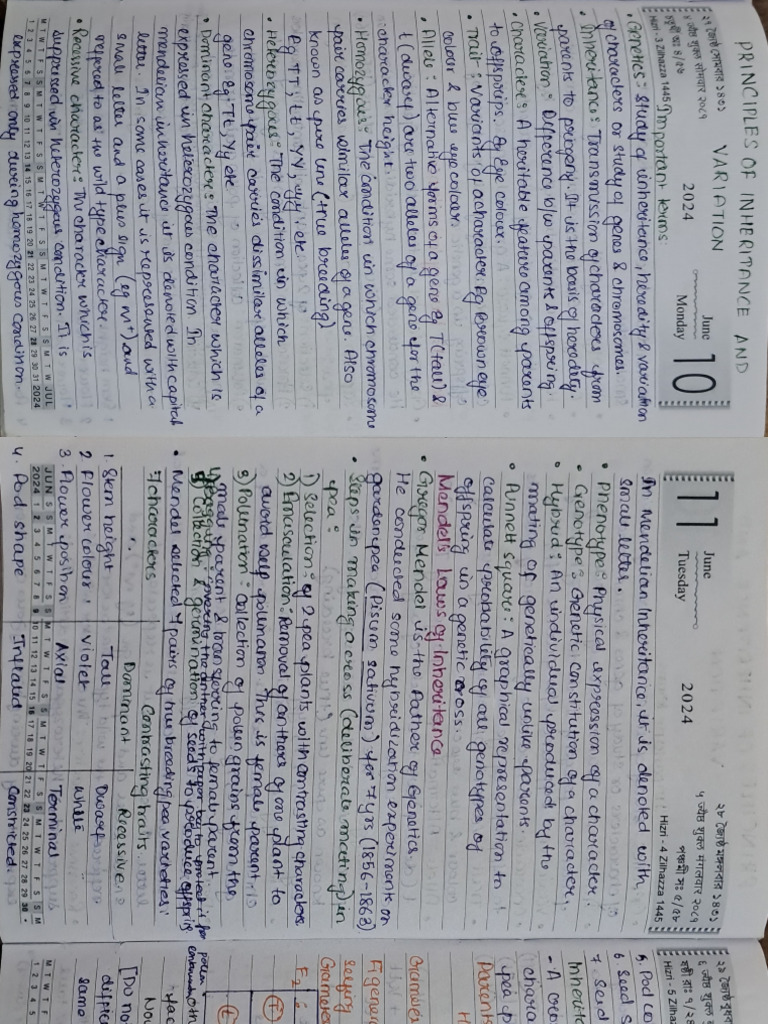 PRINCIPLES OF INHERITANCE AND
VARIATION
June
10
Monday
2024
Hizri - 3 Zilhazza 1445
Important terms.
• Genetics: Study of inheritance, heredity & variation
of characters or study of genes & chromosomes.
• Inheritance: Transmission of characters from
parents to progeny. It is the basis of heredity.
• Variation: Difference b/w parents & offspring.
• Character: A heritable feature among parents
to offsprings. Eg Eye colour.
• Trait: Variants of a character. Eg Brown eye
colour & blue eye colour.
• Allele: Alternative forms of a gene. Eg T (tall) &
t (dwarf) are two alleles of a gene for the
character height.
• Homozygous: The condition in which chromosome
pair carries similar alleles of a gene. Also
known as pure line (true breeding)
Eg TT, tt, YY, yy etc
• Heterozygous: The condition in which
chromosome pair carries dissimilar alleles of a
gene. Eg. Tt, Yy etc
• Dominant characters: The character which is
expressed in heterozygous condition. In
mendelian inheritance it is denoted with capital
letter. In some cases it is represented with a
small letter and a plus sign (eg m+) and
referred to as the wild type character.
• Recessive characters: The character which is
suppressed in heterozygous condition. It is
expressed only during homozygous condition.
M T W T F S S M T W T F S S M T W T F S S M T W T F S S M T W JUL
1 2 3 4 5 6 7 8 9 10 11 12 13 14 15 16 17 18 19 20 21 22 23 24 25 26 27 28 29 30 31 2024
11
June
Tuesday
2024
Hizri - 4 Zilhazza 1445
In Mendelian Inheritance, it is denoted with
small letter.
• Phenotype: Physical expression of a character.
• Genotype: Genetic constitution of a character.
• Hybrid: An individual produced by the
mating of genetically unlike parents.
• Punnett square: A graphical representation to
calculate probability of all genotypes of
offspring in a genetic cross.
Mendel's Laws of Inheritance
• Gregor Mendel is the Father of Genetics.
He conducted some hybridization experiments on
garden pea (Pisum sativum) for 7 yrs (1856-1863)
• Steps in making a cross (deliberate mating) in
pea:
1) Selection: of 2 pea plants with contrasting characters
2) Emasculation: Removal of anthers of one plant to
avoid self pollination. This is female parent.
3) Pollination: Collection of pollen grains from the
male parent & transferring to female parent.
5) Collection & germination of seeds to produce offspring
• Mendel selected 7 pairs of true breeding pea varieties:
7 characters Contrasting traits
Dominant Recessive
1. Stem height Tall Dwarf
2 Flower colour Violet white
3. Flower position Axial Terminal
4. Pod shape Inflated Constricted.
JUN S S M T W T F S S M T W T F S S M T W T F S S M T W T F S S M
2024 1 2 3 4 5 6 7 8 9 10 11 12 13 14 15 16 17 18 19 20 21 22 23 24 25 26 27 28 29 30
Hizri - 5 Zilhaz
5. Pod co
6 Seed s
7. Seed
Inherita
- A cro
chara
pea p
Parents
F2
same
M T W T F
1 2 3 4 5